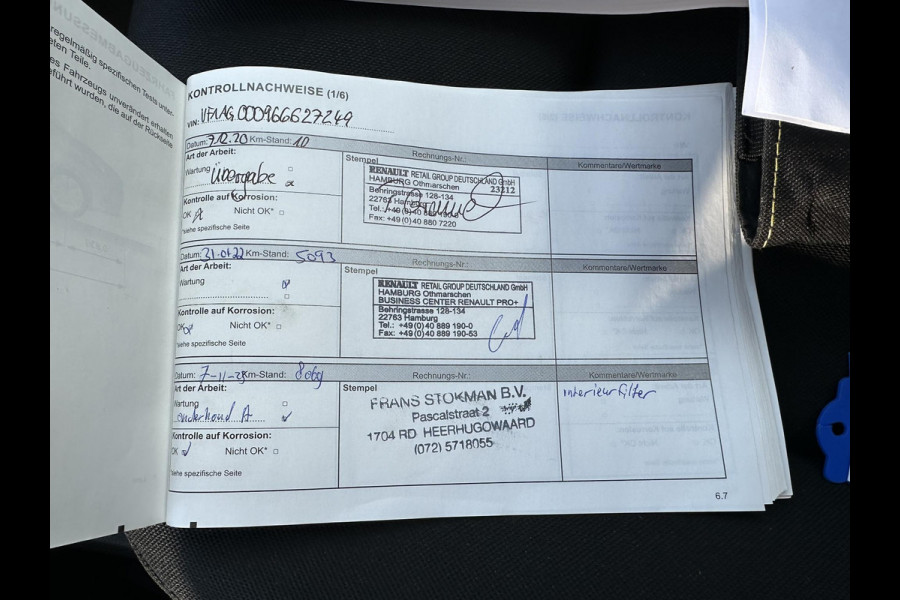 regelmäßig spezifischen Tests unter-
eten Teile.
es Fahrzeugs unverändert erhalten
eführt wurden, die auf der Rückseite
KONTROLLNACHWEISE (1/6)
VIN:
Datum: 7.12.20 Km-Stand: 10
Art der Arbeit:
Wartung
Übergabe
Kontrolle auf Korrosion:
OK Nicht OK*
*siehe spezifische Seite
Rechnungs-Nr.:
Stempel
RENAULT RETAIL GROUP DEUTSCHLAND GmbH
HAMBURG Othmarschen 23212
Behringstrasse 128-134
22763 Hamburg
Tel.: +49(0)40 889 190-0
Fax: +49(0)40 880 7220
Kommentare/Wertmarke
Datum: 31.01.22 Km-Stand: 5093
Art der Arbeit:
Wartung
Kontrolle auf Korrosion:
OK Nicht OK*
*siehe spezifische Seite
Rechnungs-Nr.:
Stempel
RENAULT RETAIL GROUP DEUTSCHLAND GmbH
HAMBURG Othmarschen
BUSINESS CENTER RENAULT PRO+
Behringstrasse 128-134
22763 Hamburg
Tel.: +49(0)40 889 190-0
Fax: +49(0)40 889 190-53
Kommentare/Wertmarke
Datum: Km-Stand: 8069
Art der Arbeit:
Wartung
onderhoud A
Kontrolle auf Korrosion:
OK Nicht OK*
*siehe spezifische Seite
Rechnungs-Nr.:
Stempel
FRANS STOKMAN B.V.
Pascalstraat 2
1704 RD HEERHUGOWAARD
(072) 5718055
Kommentare/Wertmarke
interieurfilter
6.7